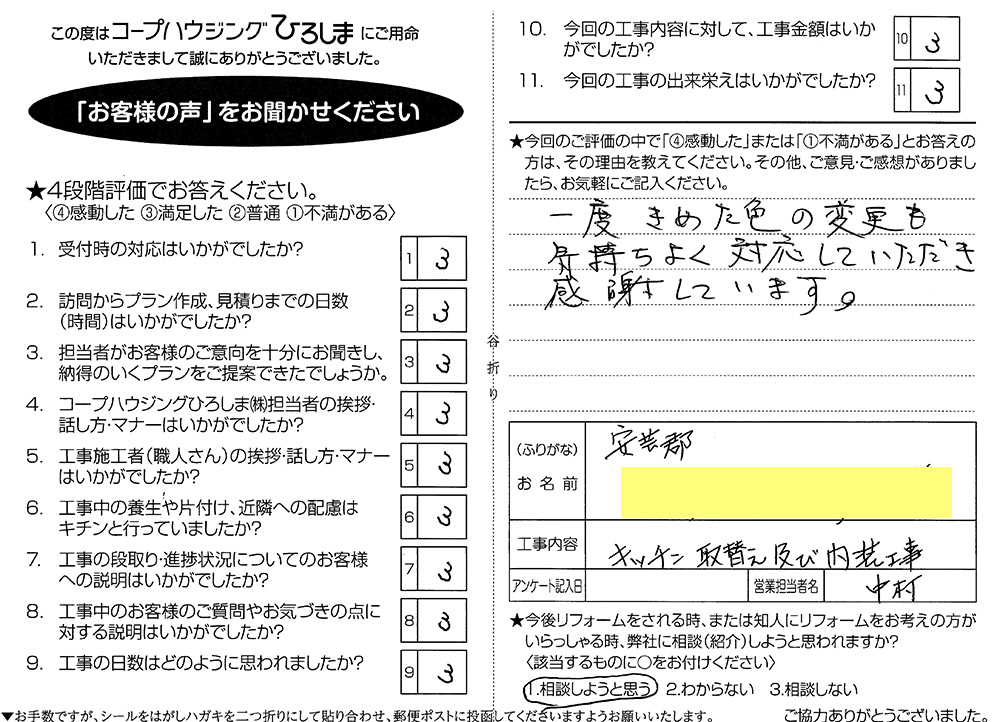 この度はコープハウジングひろしまにご用命
いただきまして誠にありがとうございました。
「お客様の声」をお聞かせください
★4段階評価でお答えください。
〈④感動した ③満足した ②普通 ①不満がある〉
1. 受付時の対応はいかがでしたか?
1 3
2. 訪問からプラン作成、見積りまでの日数
(時間)はいかがでしたか?
2 3
3. 担当者がお客様のご意向を十分にお聞きし、
納得のいくプランをご提案できたでしょうか。
3 3
4. コープハウジングひろしま㈱担当者の挨拶・
話し方・マナーはいかがでしたか?
4 3
5. 工事施工者(職人さん)の挨拶・話し方・マナー
はいかがでしたか?
5 3
6. 工事中の養生や片付け、近隣への配慮は
キチンと行っていましたか?
6 3
7. 工事の段取り・進捗状況についてのお客様
への説明はいかがでしたか?
7 3
8. 工事中のお客様のご質問やお気づきの点に
対する説明はいかがでしたか?
8 3
9. 工事の日数はどのように思われましたか?
9 3
▼お手数ですが、シールをはがしハガキを二つ折りにして貼り合わせ、郵便ポストに投函してくださいますようお願いいたします。
谷折り
10. 今回の工事内容に対して、工事金額はいか
がでしたか?
10 3
11. 今回の工事の出来栄えはいかがでしたか?
11 3
★今回のご評価の中で「④感動した」または「①不満がある」とお答えの
方は、その理由を教えてください。その他、ご意見・ご感想がありまし
たら、お気軽にご記入ください。
一度きめた色の変更も
気持ちよく対応していただき
感謝しています。
(ふりがな)
お名前
安芸郡
工事内容
キッチン取替え及び内装工事
アンケート記入日
営業担当者名
中村
★今後リフォームをされる時、または知人にリフォームをお考えの方が
いらっしゃる時、弊社に相談(紹介)しようと思われますか?
〈該当するものに○をお付けください〉
1.相談しようと思う 2.わからない 3.相談しない
ご協力ありがとうございました。